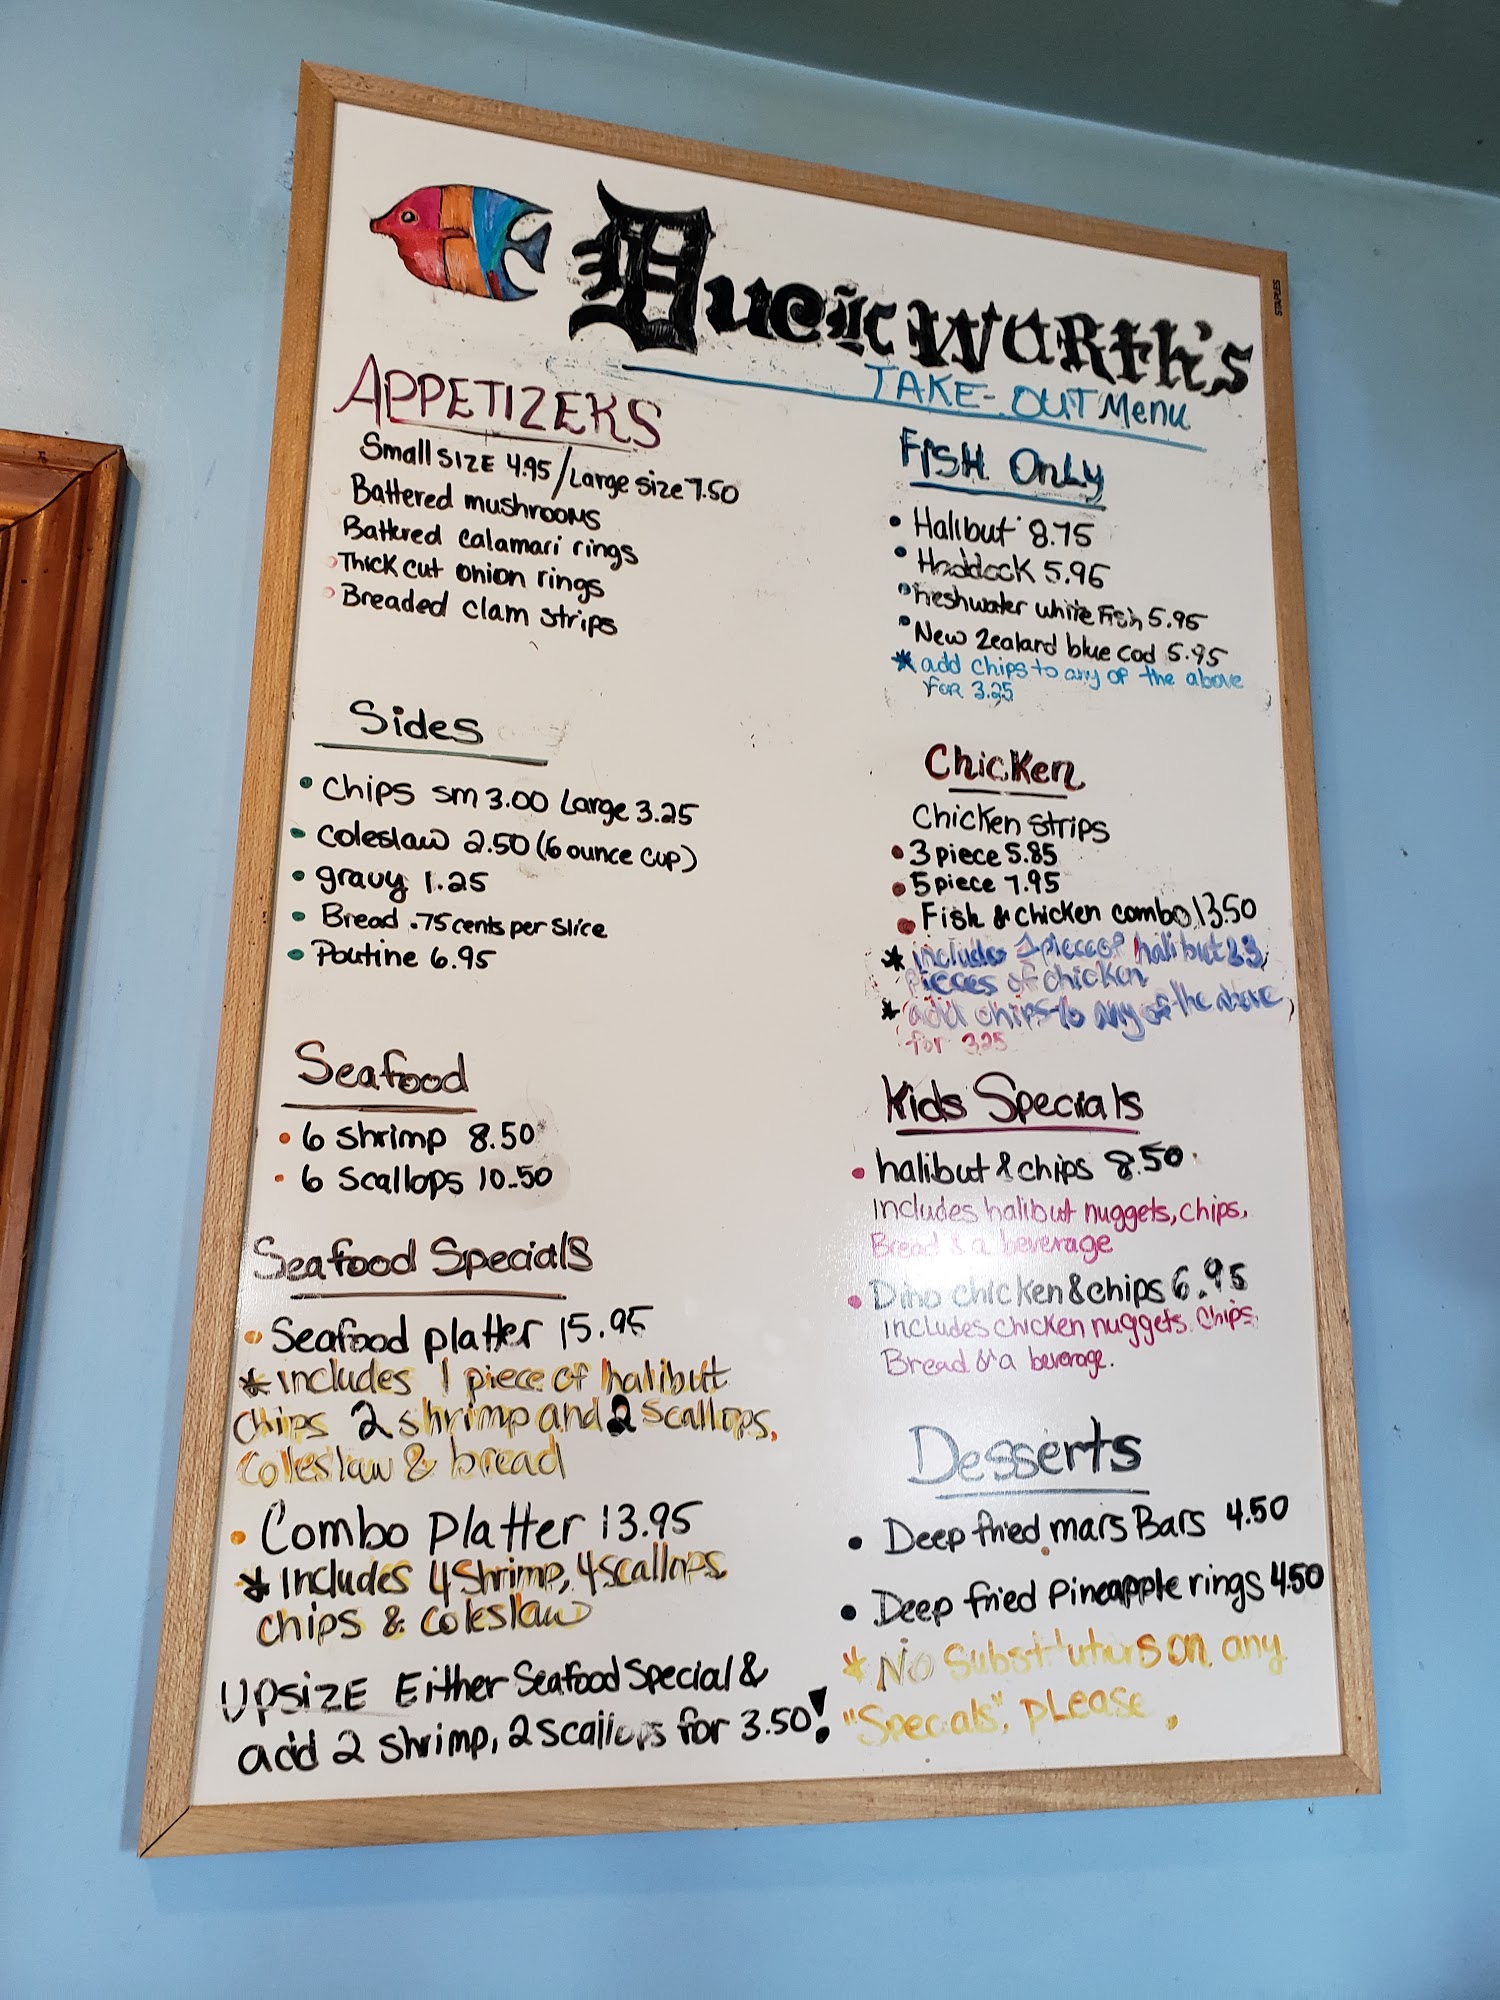 Duckworth's
TAKE-OUT Menu
APPETIZERS
Small SIZE 4.95/Large size 7.50
Battered mushrooms
Battered calamari rings
Thick cut onion rings
Breaded clam strips
Sides
• Chips sm 3.00 Large 3.25
• Coleslaw 2.50 (6 ounce cup)
• gravy 1.25
• Bread .75 cents per slice
• Poutine 6.95
Seafood
• 6 Shrimp 8.50
• 6 Scallops 10.50
Seafood Specials
• Seafood platter 15.95
* includes 1 piece of halibut
chips 2 shrimp and 2 scallops,
Coleslaw & bread
• Combo Platter 13.95
* includes 4 Shrimp, 4 scallops,
chips & coleslaw
UPSIZE Either Seafood Special &
add 2 shrimp, 2 scallops for 3.50!
FISH Only
• Halibut 8.75
• Haddock 5.95
• freshwater white Fish 5.95
• New Zealand blue Cod 5.95
* add chips to any of the above
for 3.25
Chicken
Chicken strips
• 3 piece 5.85
• 5 piece 7.95
• Fish & chicken combo 13.50
* includes 1 piece of halibut & 3
pieces of chicken
* add chips to any of the above
for 3.25
Kids Specials
• halibut & chips 8.50
Includes halibut nuggets, chips,
Bread & a beverage
• Dino chicken & chips 6.95
includes chicken nuggets. Chips
Bread & a beverage.
Desserts
• Deep fried mars Bars 4.50
• Deep fried Pineapple rings 4.50
* No Substitutions on any
"Specials", please.
STAPLES